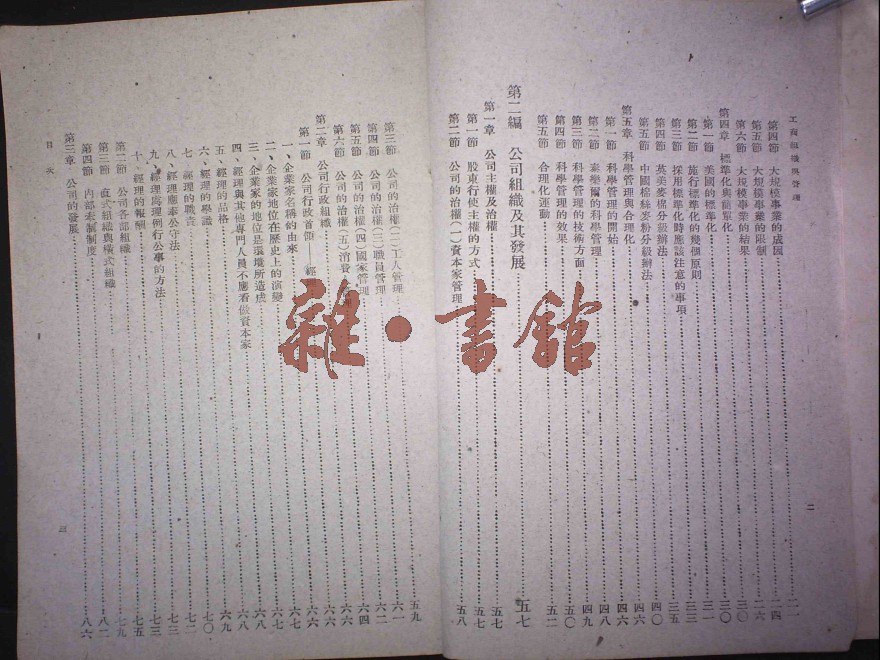 工商組織與管理
二
第四節 大規模事業的成因
第五節 大規模事業的限制
第六節 大規模事業的結果 三〇
第四章 標準化與簡單化 三〇
第一節 美國的標準化 三一
第二節 施行標準化的幾個原則 三三
第三節 採用標準化時應該注意的事項 三五
第四節 英美麥棉分級辦法 四〇
第五節 中國棉絲麥粉分級辦法 四六
第五章 科學管理與合理化 四六
第一節 科學管理的開始 四八
第二節 泰樂爾的科學管理 四九
第三節 科學管理的技術方面 五〇
第四節 科學管理的效果 五二
第五節 合理化運動
第二編 公司組織及其發展 五七
第一章 公司主權及治權 五七
第一節 股東行使主權的方式 五七
第二節 公司的治權(一)資本家管理 五八
第三節 公司的治權(二)工人管理 五九
第四節 公司的治權(三)職員管理 六一
第五節 公司的治權(四)國家管理 六二
第六節 公司的治權(五)消費 六四
第二章 公司行政組織 六六
第一節 公司行政首領——經 六六
一、企業家名稱的由來 六六
二、企業家地位在歷史上的演變 六七
三、企業家的地位是環境所造成 六八
四、經理與其他專門人員不應看做資本家 六八
五、經理的品格 六九
六、經理的學識 七〇
七、經理的職責 七二
八、經理應奉公守法 七三
九、經理處理例行公事的方法 七三
十、經理的報酬 七五
第二節 公司各部組織 七九
第三節 直式組織與橫式組織 八二
第四節 內部牽制制度 八六
第三章 公司的發展
目次
三
雜·書館